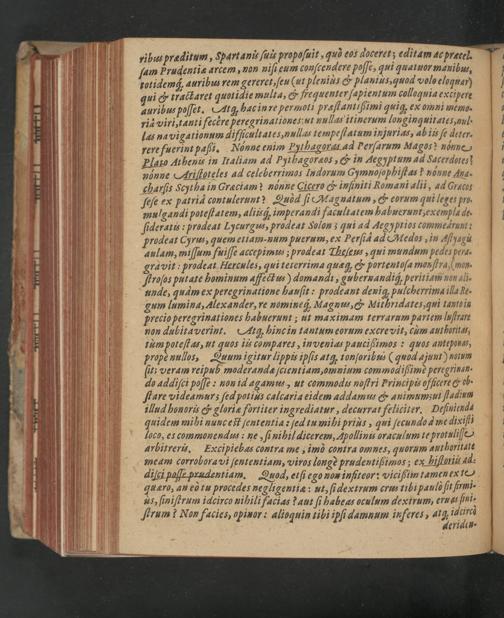 ribus præditum, Spartanis suis proposuit, quò eos doceret; editam ac præcel-
sam Prudentiæ arcem, non nisi eum conscendere posse, qui quatuor manibus,
totidemq́, auribus rem gereret, seu (ut plenius & planius, quod volo eloquar)
qui & tractaret quotidie multa, & frequenter sapientum colloquia excipere
auribus posset. Atq́, hac in re permoti præstantissimi quiq́, ex omni memo-
riâ viri, tanti fecêre peregrinationes: ut nullas itinerum longinquitates, nul-
las navigationum difficultates, nullas tempestatum injurias, ab iis se deter-
rere fuerint passi. Nónne enim Pythagoras ad Persarum Magos? nónne
Plato Athenis in Italiam ad Pythagoræos, & in Ægyptum ad Sacerdotes?
nónne Aristoteles ad celeberrimos Indorum Gymnosophistas? nónne Ana-
charsis Scytha in Græciam? nónne Cicero & infiniti Romani alii, ad Græcos
sese ex patriâ contulerunt? Quòd si Magnatum, & eorum qui leges pro-
mulgandi potestatem, aliisq́, imperandi facultatem habuerunt, exempla de-
sideratis: prodeat Lycurgus, prodeat Solon; qui ad Ægyptios commeârunt:
prodeat Cyrus, quem etiam-num puerum, ex Persiâ ad Medos, in Astyagis
aulam, missum fuisse accepimus; prodeat Theseus, qui mundum pedes pera-
gravit: prodeat Hercules, qui teterrima quæq́, & portentosa monstra, (mon-
strosos puta te hominum affectus) domandi, gubernandiq́, peritiam non ali-
unde, quàm ex peregrinatione hausit: prodeant deniq́, pulcherrima illa Re-
gum lumina, Alexander, re nomineq́, Magnus, & Mithridates, qui tanto in
precio peregrinationes habuerunt; ut maximam terrarum partem lustrare
non dubitaverint. Atq́, hinc in tantum eorum excrevit, cùm authoritas,
tùm potestas, ut quos iis compares, invenias paucissimos: quos anteponas,
propè nullos. Quum igitur lippis ipsis atq́, tonsoribus (quod ajunt) notum
sit: veram reipub moderandæ scientiam, omnium commodissimè peregrinan-
do addisci posse: non id agamus, ut commodis nostri Principis officere & ob-
stare videamur; sed potius calcaria eidem addamus & animum; ut stadium
illud honoris & gloriæ fortiter ingrediatur, decurrat feliciter. Definienda
quidem mihi nunc est sententia: sed tu mihi prius, qui secundo à me dixisti
loco, es commonendus: ne, si nihil dicerem, Apollinis oraculum te protulisse
arbitreris. Excipiebas contra me, imò contra omnes, quorum authoritate
meam corroboravi sententiam, viros longè prudentissimos; ex historiis ad-
disci posse prudentiam. Quod, etsi ego non infiteor: vicissim tamen ex te
quæro, an eò tu procedes negligentiæ: ut, si dextrum crus tibi paulò sit firmi-
us, sinistrum idcirco nihili facias? aut si habeas oculum dextrum, eruas sini-
strum? Non facies, opinor: alioquin tibi ipsi damnum inferes, atq́, idcircò
deriden-